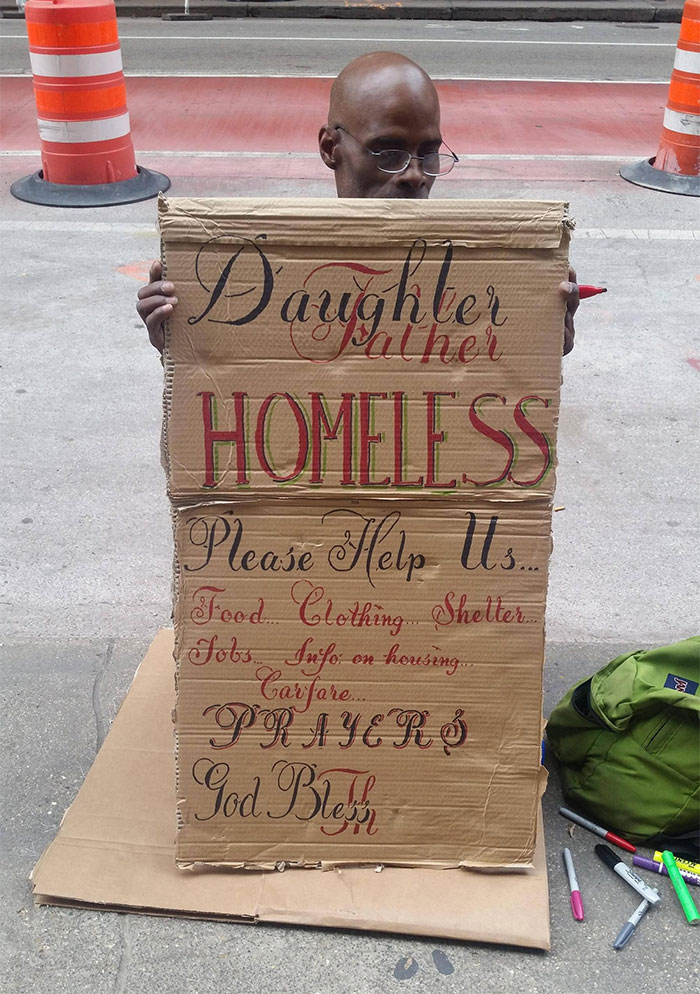 Daughter
Father
HOMELESS
Please Help Us...
Food... Clothing... Shelter...
Jobs... Info. on housing...
Carfare...
PRAYERS
God Bless
Th